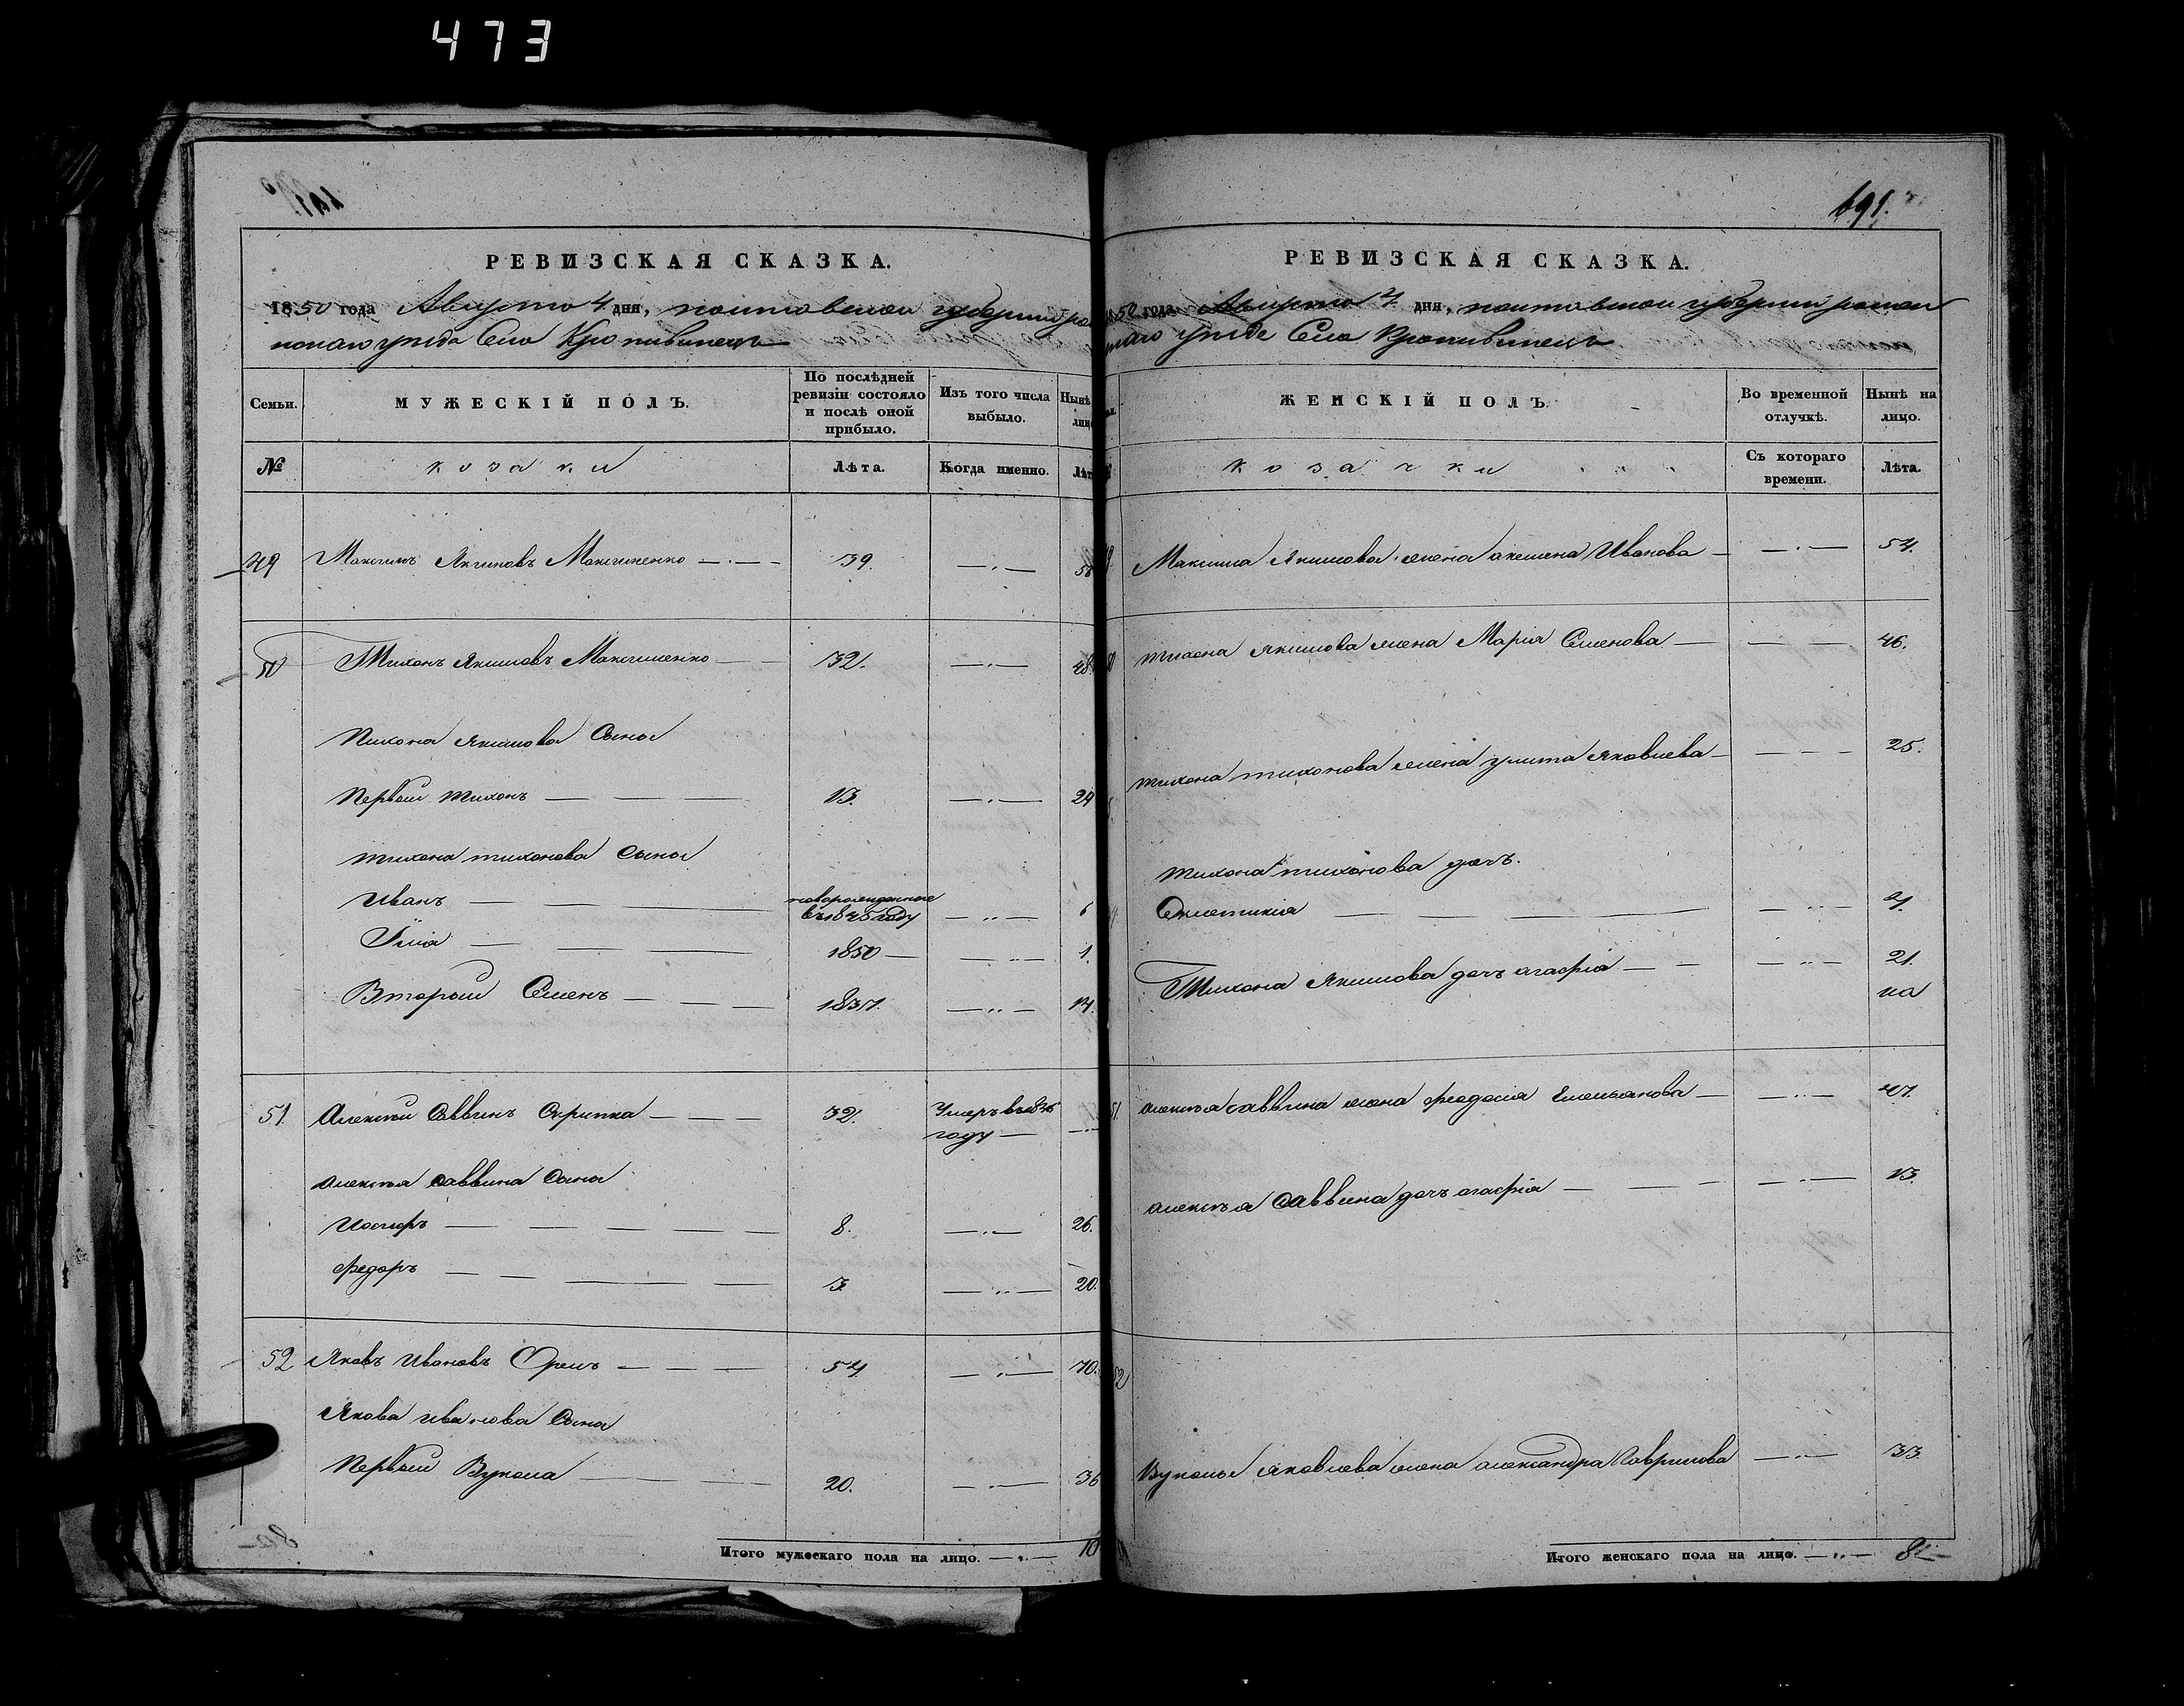 473
691.
РЕВИЗСКАЯ СКАЗКА.
1850 года Августа 4 дня, полтавской губернии ро
менскаго уезда Село Кропивинецъ
Семьи. МУЖЕСКІЙ ПОЛЪ. По послѣдней ревизіи состояло и послѣ оной прибыло. Изъ того числа выбыло. Нынѣ лиц
№ козаки Лѣта. Когда именно. Лѣт
49 Максимъ Якимовъ Максименко 39. 55
50 Тихонъ Якимовъ Максименко 32. 48.
Тихона Якимова Сыны
Первый Тихонъ 13. 29
Тихона тихонова Сыны
Иванъ новорожденные въ 1845 году 6
Илія 1850 1.
Второй Семенъ 1837. 14.
51. Алексѣй Саввинъ Скрипка 32. Умеръ въ 1846
году
Алексѣя Саввина Сыны
Иосифъ 8. 26.
Федоръ 3 20.
52 Яковъ Ивановъ Орелъ 54 70.
Якова Иванова Сыны
Первый Вукола 20. 36
Итого мужескаго пола на лицо. 10
РЕВИЗСКАЯ СКАЗКА.
1850 года Августа 4 дня, полтавской губерніи ромен
скаго уезда Село Кропивинецъ
ЖЕНСКІЙ ПОЛЪ. Во временной отлучкѣ. Нынѣ на лицо.
козачки Съ котораго времени. Лѣта.
Максима Якимова жена Акилина Иванова 54.
Тихона Якимова жена Марія Семенова 46.
Тихона тихонова жена Улита Яковлева 25.
Тихона тихонова дочь.
Евфтихія 4.
Тихона Якимова дочь Агафія 21.
51. Алексѣя Саввина жена Феодосія Емельянова 47.
Алексѣя Саввина дочь Агафія 13.
52 Вуколы Яковлева жена Александра Гаврилова 33
Итого женскаго пола на лицо. 8